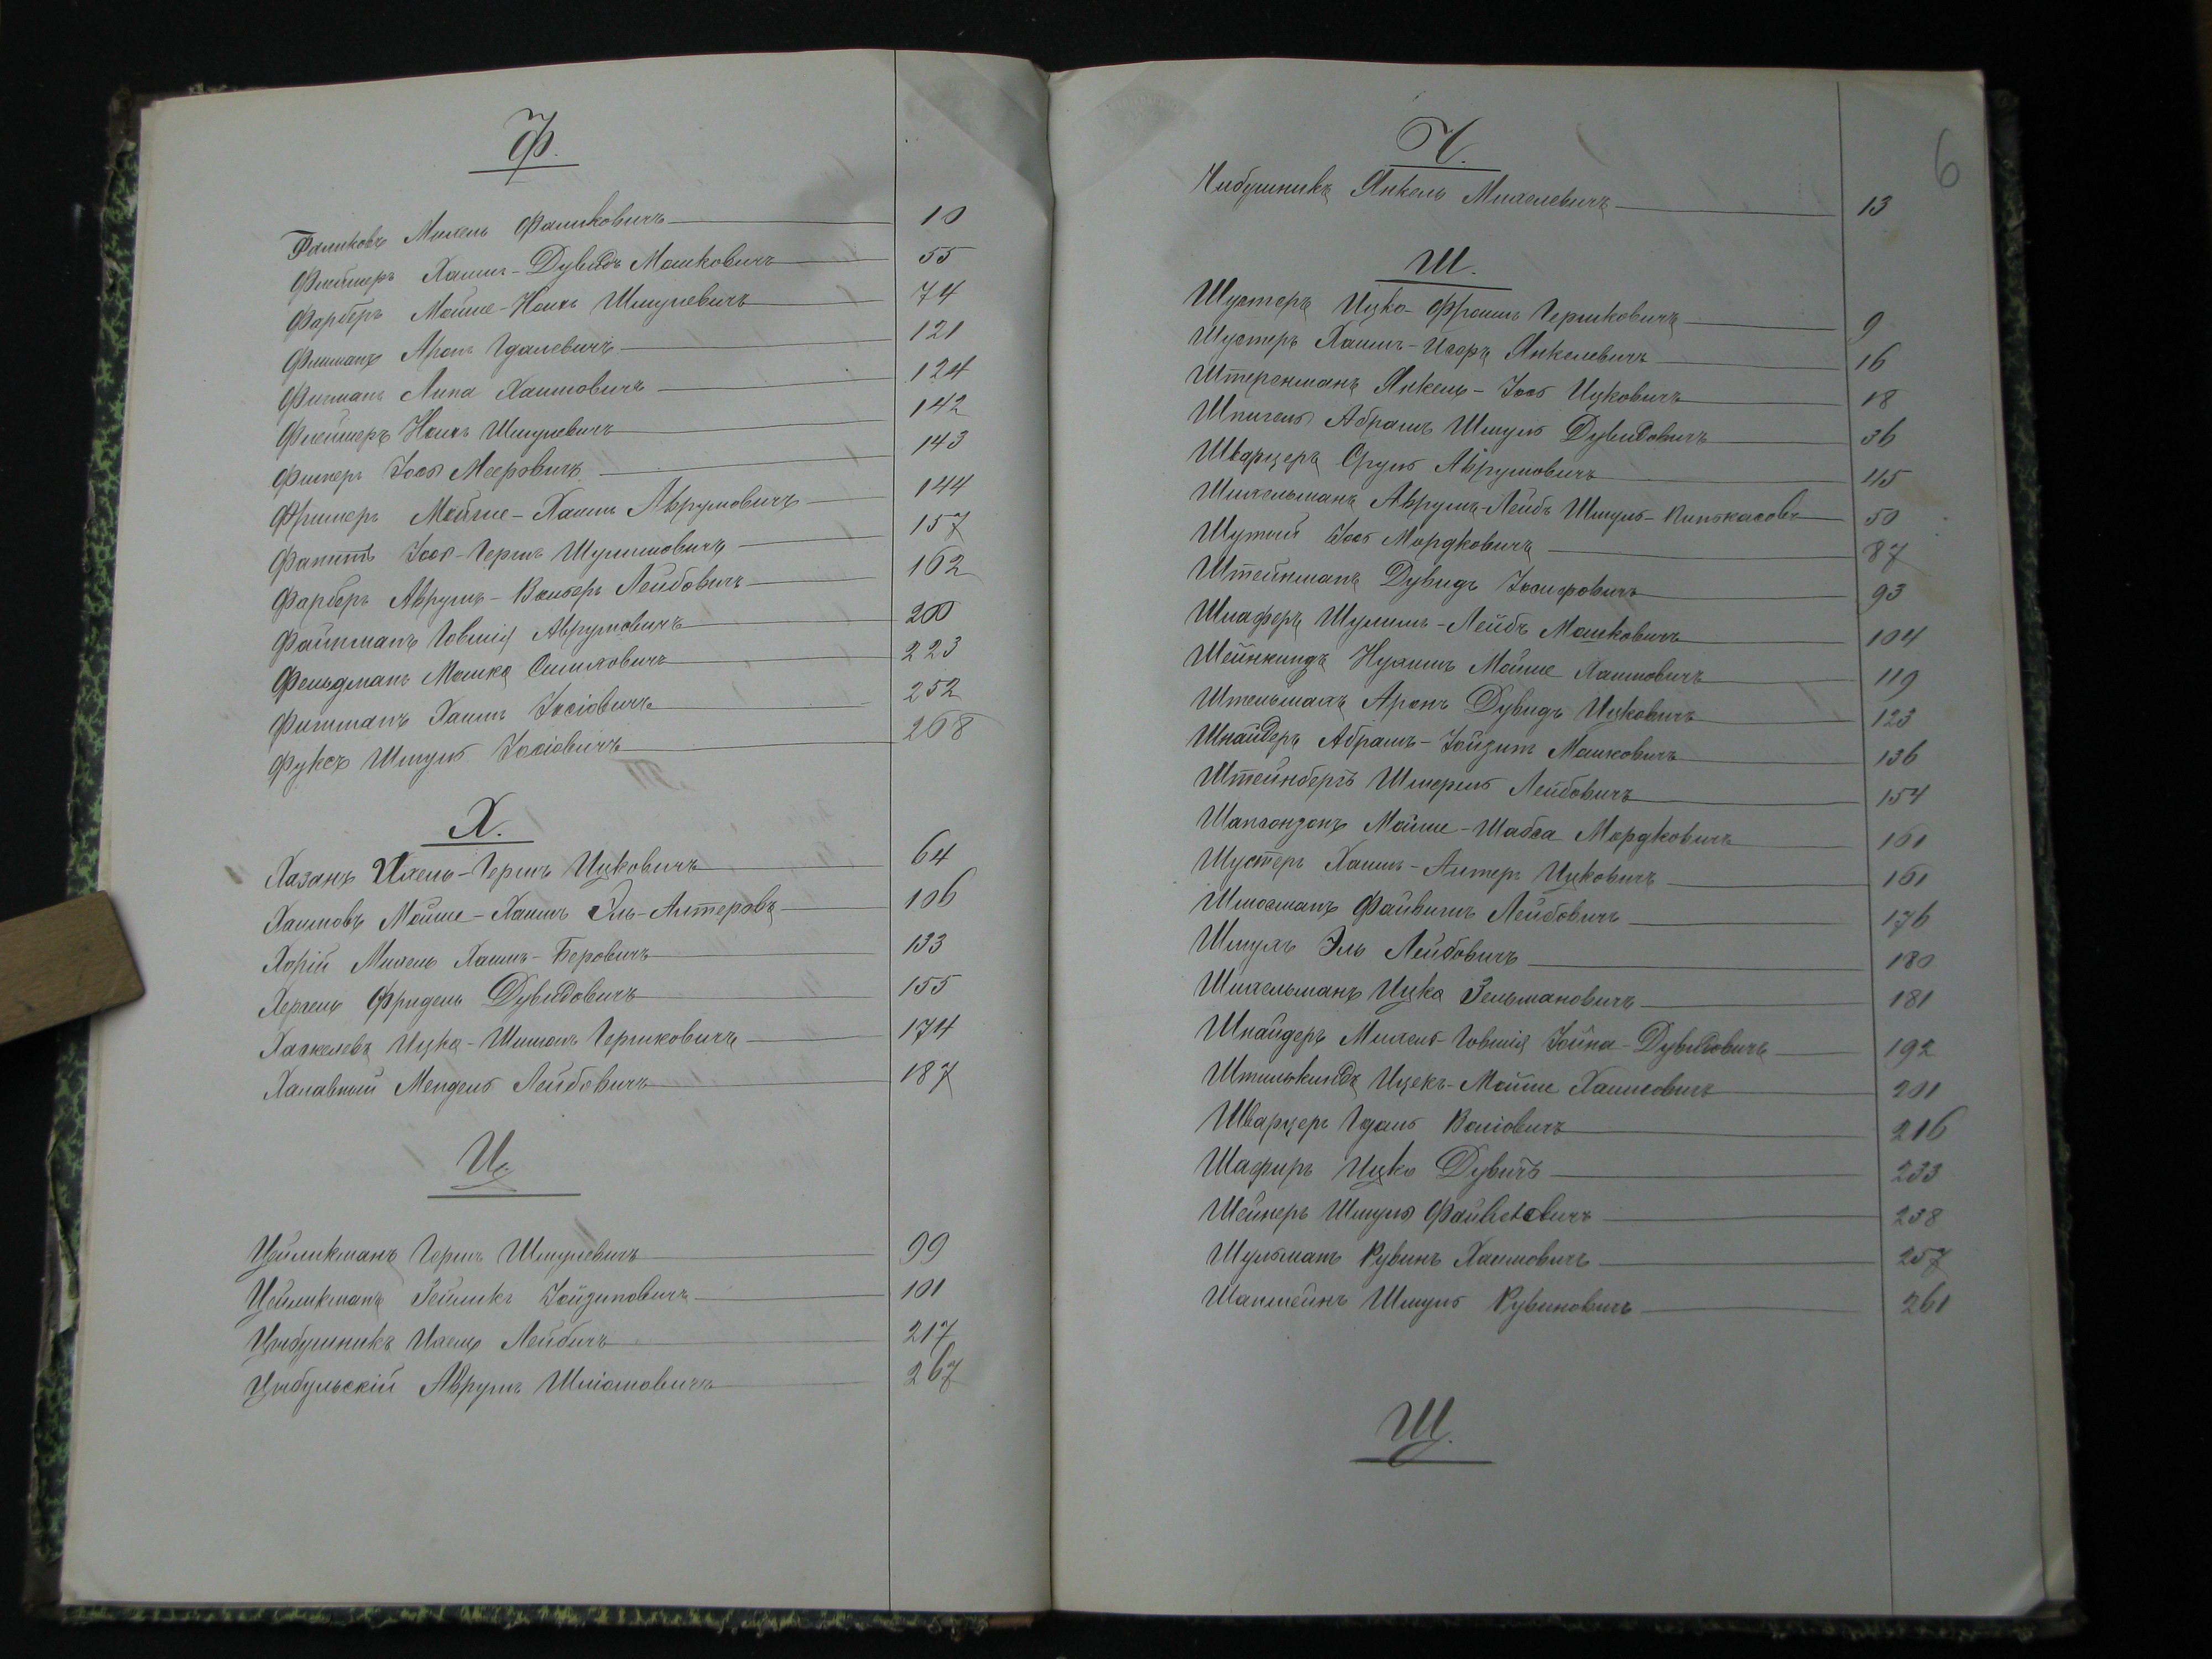 Ф.
Фаликовъ Михель Фаликовичъ 10
Флейшеръ Хаимъ-Дувидъ Мошковичъ 55
Фарберъ Мойше-Нохъ Шмулевичъ 74
Фишманъ Аронъ Гдалевичъ 121
Фишманъ Липа Хаимовичъ 124
Флейшеръ Нохъ Шмулевичъ 142
Фишеръ Іось Мееровичъ 143
Фишеръ Мойше-Хаимъ Аврумовичъ 144
Іось-Гершъ Шулимовичъ 157
Фарберъ Аврумъ- Лейбовичъ 162
Файнманъ Говшія Аврумовичъ 200
Фельдманъ Мошко Симховичъ 223
Фишманъ Хаимъ Іосіовичъ 252
Фуксъ Шмуль Іосіовичъ 268
Х.
Хазанъ Ихель-Гершъ Ицковичъ 64
Хаимовъ Мойше-Хаимъ Эль-Алтеровъ 106
Михель Хаимъ-Беровичъ 133
Фридель Дувидовичъ 155
Хаскелевъ Ицко-Шимонъ Гершковичъ 174
Халавный Мендель Лейбовичъ 187
Ц.
Цейликманъ Гершъ Шмулевичъ 99
Цейликманъ Зейликъ Зойдиповичъ 101
Цыбушникъ Ихель Лейбичъ 217
Цыбульскій Аврумъ Шліомовичъ 267
6
Ч.
Чибушникъ Янкель Михелевичъ 13
Ш.
Шустеръ Ицко-Фроимъ Гершковичъ 9
Шустеръ Хаимъ-Исоръ Янкелевичъ 16
Штеренманъ Янкель-Іось Ицковичъ 18
Шпигель Абрамъ Шмуль Дувидовичъ 36
Шварцеръ Сруль Аврумовичъ 45
Шихельманъ Аврумъ-Лейбъ Шмуль-Пинхасовъ 50
Шутый Іось Мордковичъ 87
Штейнманъ Дувидъ Іосифовичъ 93
Шулимъ-Лейбъ Мошковичъ 104
Шейнкиндъ Нухимъ Мойше Хаимовичъ 119
Штельманъ Аронъ Дувидъ Ицковичъ 123
Шнайдеръ Абрамъ-Зойдип Мошковичъ 136
Штейнбергъ Шмериль Лейбовичъ 154
Шапсонзонъ Мойше-Шабса Мордковичъ 161
Шустеръ Хаимъ-Алтеръ Ицковичъ 161
Файвишъ Лейбовичъ 176
Эль Лейбовичъ 180
Шихельманъ Ицко Зельмановичъ 181
Шнайдеръ Михель-Говшія Іойна-Дувидовичъ 192
Ицекъ-Мойше Хаимовичъ 201
Шварцеръ Гдаль Воліовичъ 216
Шафиръ Ицко Дувичъ 233
Шейнеръ Шмуль Файвелевичъ 238
Шульманъ Рувинъ Хаимовичъ 257
Шмуль Рувиновичъ 261
Щ.